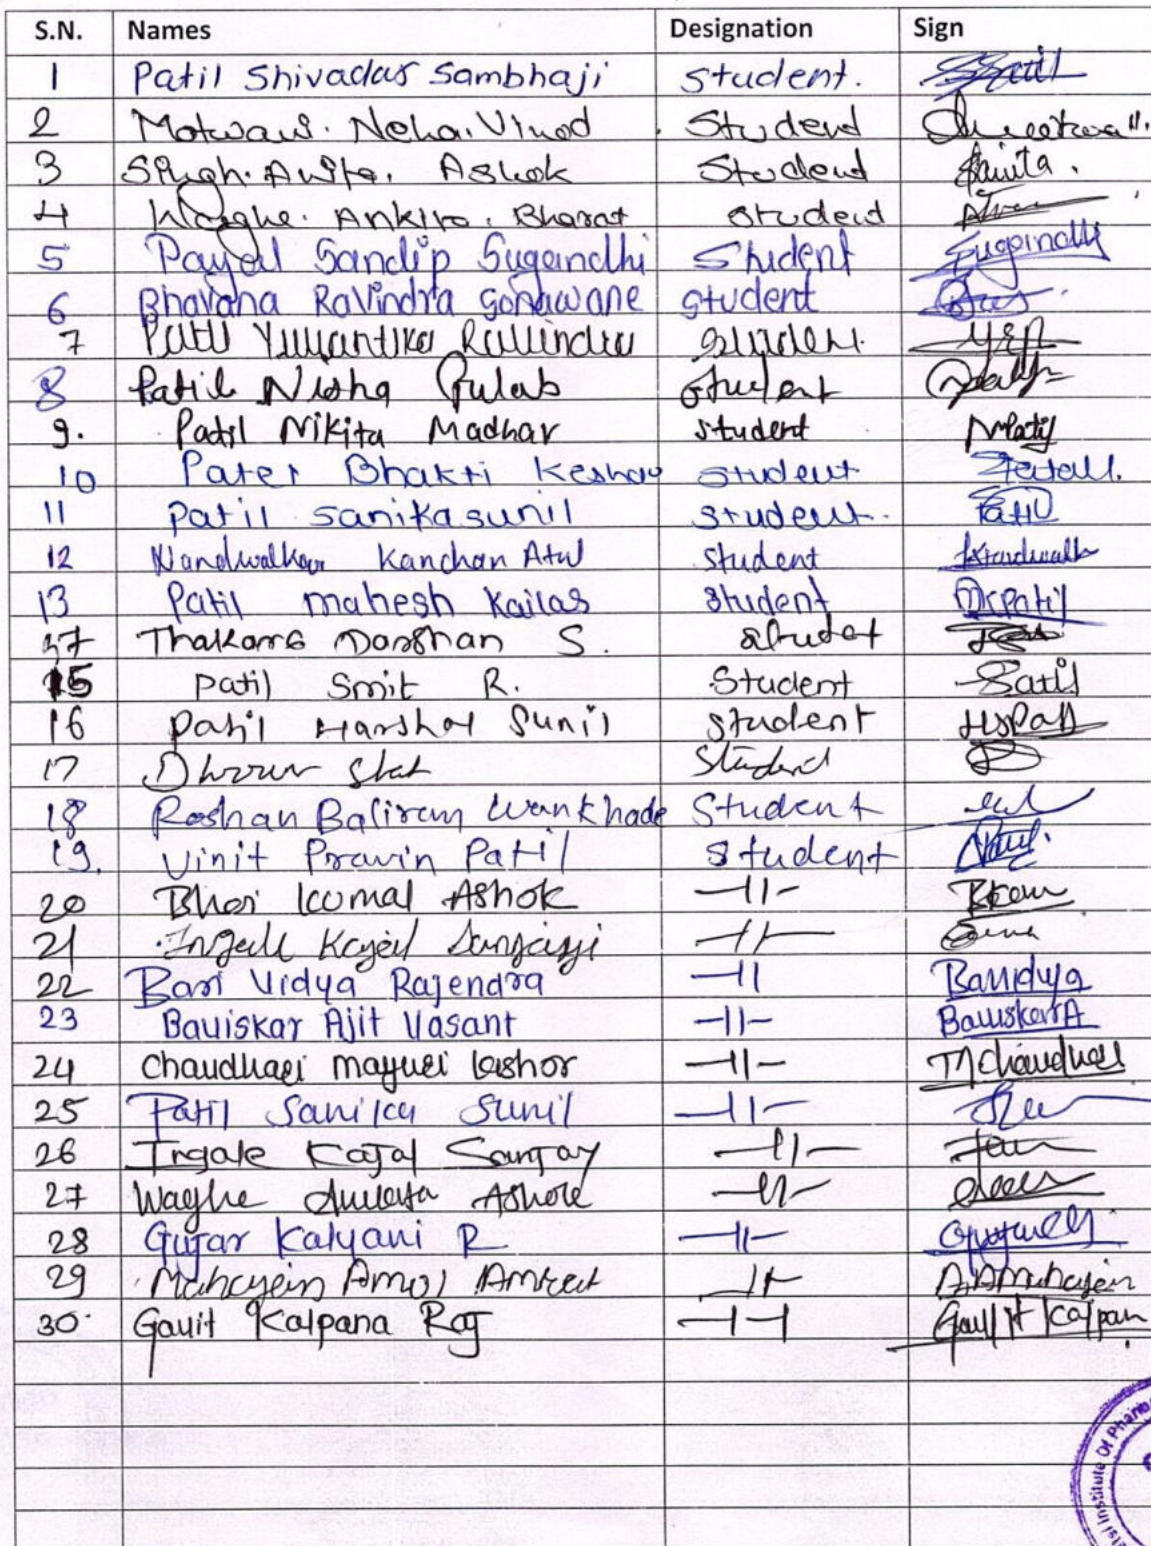 S.N. Names Designation Sign
1 Patil Shivadas Sambhaji Student. Patil
2 Motwani. Neha. Vinod Student
3 Singh. Anita. Ashok Student Sanita.
4 Waghe. Ankita. Bharat Student
5 Payal Sandip Sugandhi Student Sugandhi
6 Bhavana Ravindra Sonawane Student
7 Patil Yuvantika Ravindra Student
8 Patil Nisha Gulab Student
9. Patil Nikita Madhav Student NPatil
10 Patel Bhakti Keshav Student
11 Patil Sanika sunil Student. Patil
12 Nandwalkar Kanchan Atul Student
13 Patil mahesh Kailas Student MKPatil
Thakare Darshan S. Studet
15 Patil Smit R. Student Patil
16 Patil Harshal Sunil Student HSPatil
17 Student
18 Roshan Baliram Wankhade Student
19. Vinit Pravin Patil Student
20 Bhoi Komal Ashok -||-
21 Ingale Kajal -||-
22 Bari Vidya Rajendra -|| Barividya
23 Baviskar Ajit Vasant -||- BaviskarA
24 Chaudhari mayuri Kishor -||- MChaudhari
25 Patil Sanika Sunil -||-
26 Ingale Kajal Sanjay -||-
27 Waghe Ashok -||-
28 Gujar Kalyani R -||-
29 Mahajan Amol Amrut -||- A.AMahajan
30. Gavit Kalpana Raj -||- Gavit Kalpan
Institute Of Pharma